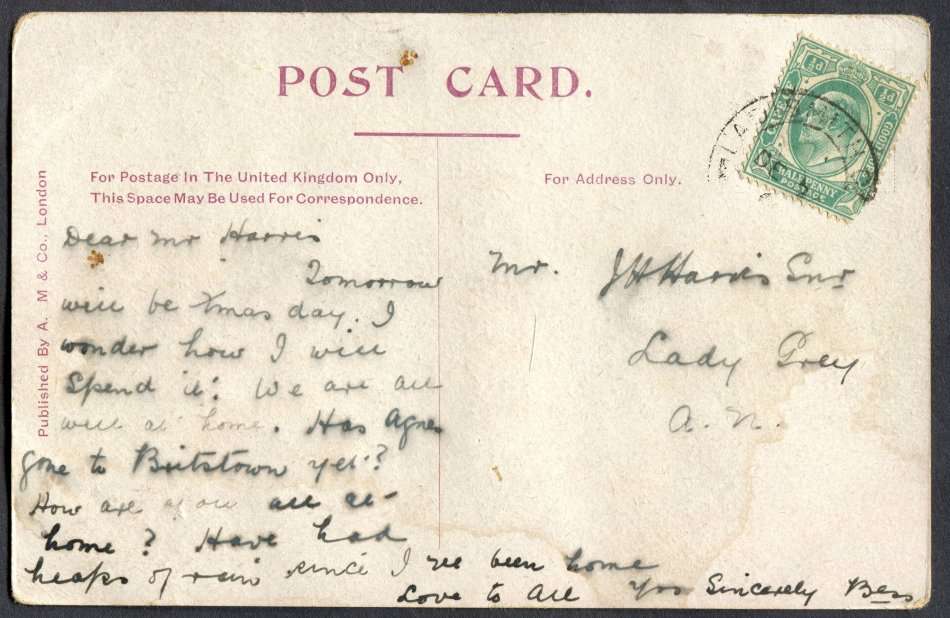 POST CARD.
For Postage In The United Kingdom Only,
This Space May Be Used For Correspondence.
For Address Only.
Published By A. M & Co., London
HALFPENNY
POSTAGE
½d
½d
Dear Mr Harris
Tomorrow
will be Xmas day. I
wonder how I will
spend it! We are all
well at home. Has Agnes
gone to Britstown yet?
How are you all at
home? Have had
heaps of rain since I've been home
Love to All Yrs Sincerely Bess
Mr. J H Harris Snr
Lady Grey
A. N.